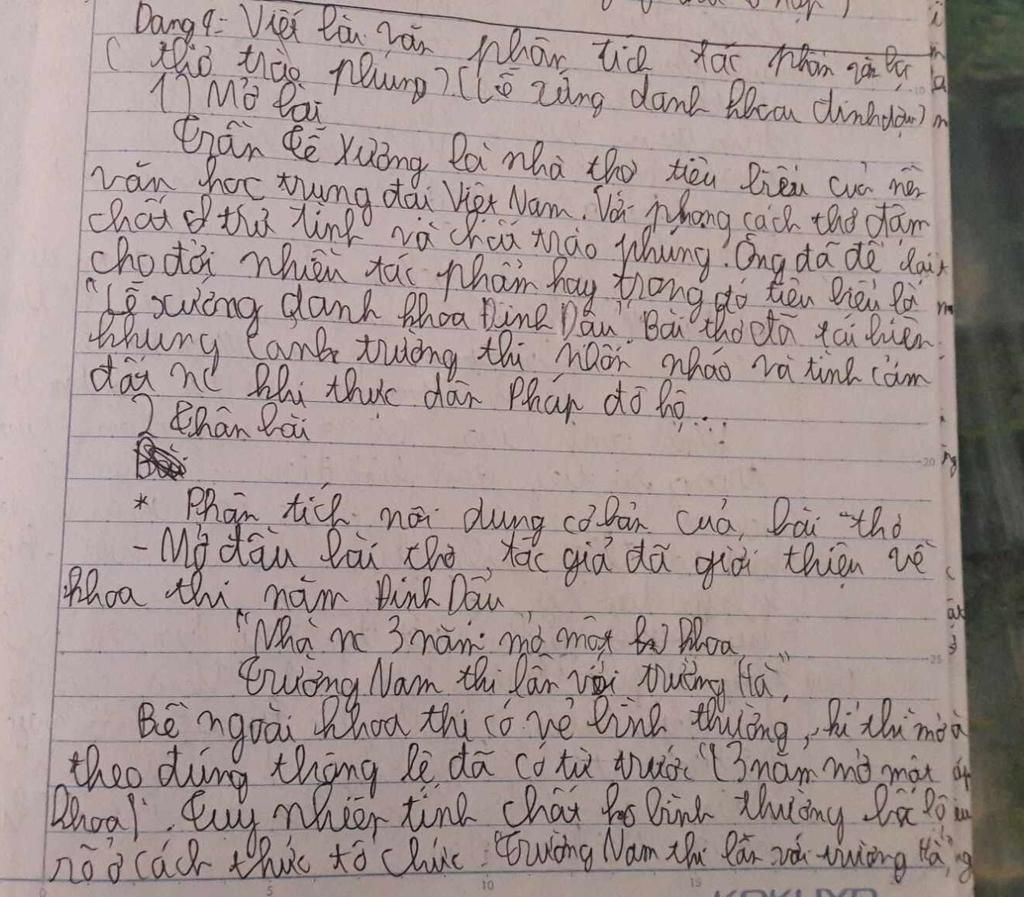 Dạng 9: Viết bài văn phân tích tác phẩm văn học
(thơ trào phúng) (Lễ xứng danh khoa đinh dậu)
1) Mở bài
Trần Tế Xương là nhà thơ tiêu biểu của nền
văn học trung đại Việt Nam. Với phong cách thơ đậm
chất trữ tình và chất trào phúng. Ông đã để lại
cho đời nhiều tác phẩm hay trong đó tiêu biểu là
"Lễ xướng danh khoa Đinh Dậu". Bài thơ đã tái hiện
khung cảnh trường thi nhốn nháo và tình cảm
đất nc khi thực dân Pháp đô hộ...
2) Thân bài
* Phân tích nội dung cơ bản của bài thơ
- Mở đầu bài thơ, tác giả đã giới thiệu về
khoa thi năm Đinh Dậu
"Nhà nc 3 năm mở một khoa
Trường Nam thi lẫn với trường Hà"
Bề ngoài khoa thi có vẻ bình thường, kì thi mở
theo đúng thông lệ đã có từ trước (3 năm mở một
khoa). Tuy nhiên tính chất ko bình thường bộc lộ
rõ ở cách thức tổ chức: "Trường Nam thi lẫn với trường Hà"
0 5 10 15
10
20
25
KOKUYO